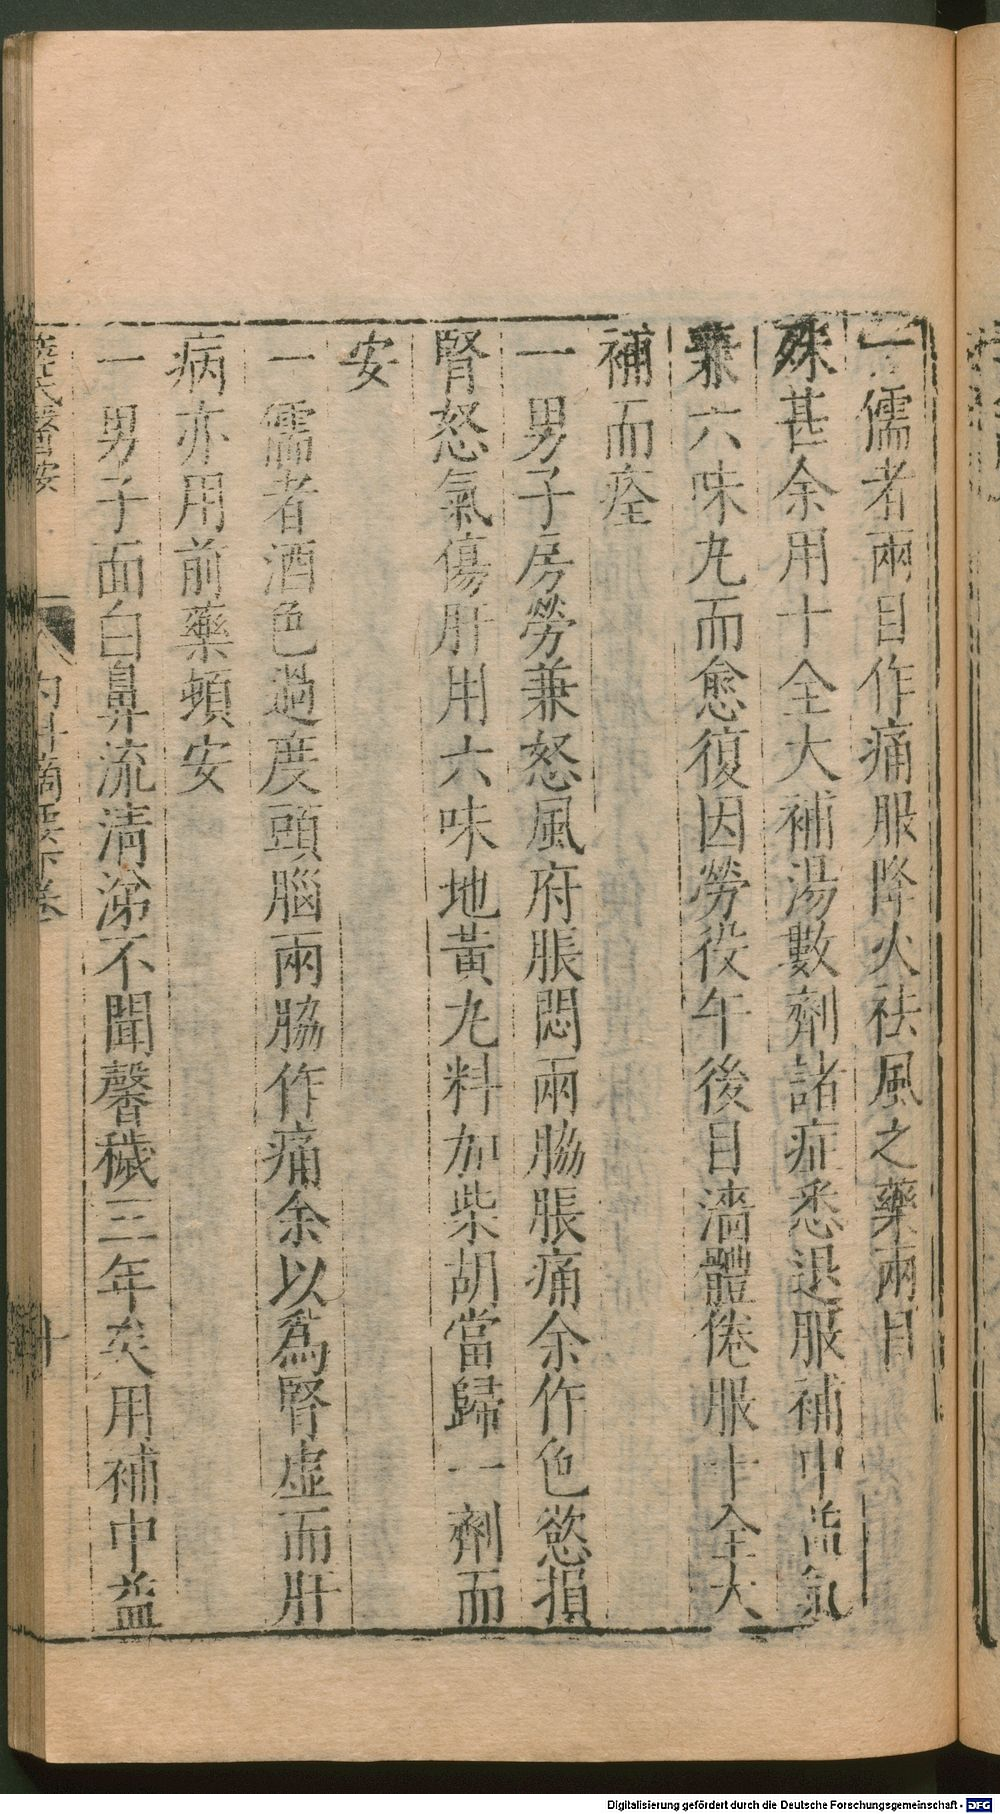 一儒者兩目作痛服降火祛風之藥兩目
殊甚余用十全大補湯數劑諸症悉退服補中益氣
兼六味丸而愈復因勞役午後目濇體倦服十全大
補而痊
一男子房勞兼怒風府脹悶兩脇脹痛余作色慾損
腎怒氣傷肝用六味地黃丸料加柴胡當歸一劑而
安
一儒者酒色過度頭腦兩脇作痛余以爲腎虛而肝
病亦用前藥頓安
一男子面白鼻流淸涕不聞馨穢三年矣用補中益
薛氏醫案
內科摘要下卷
十
Digitalisierung gefördert durch die Deutsche Forschungsgemeinschaft - DFG